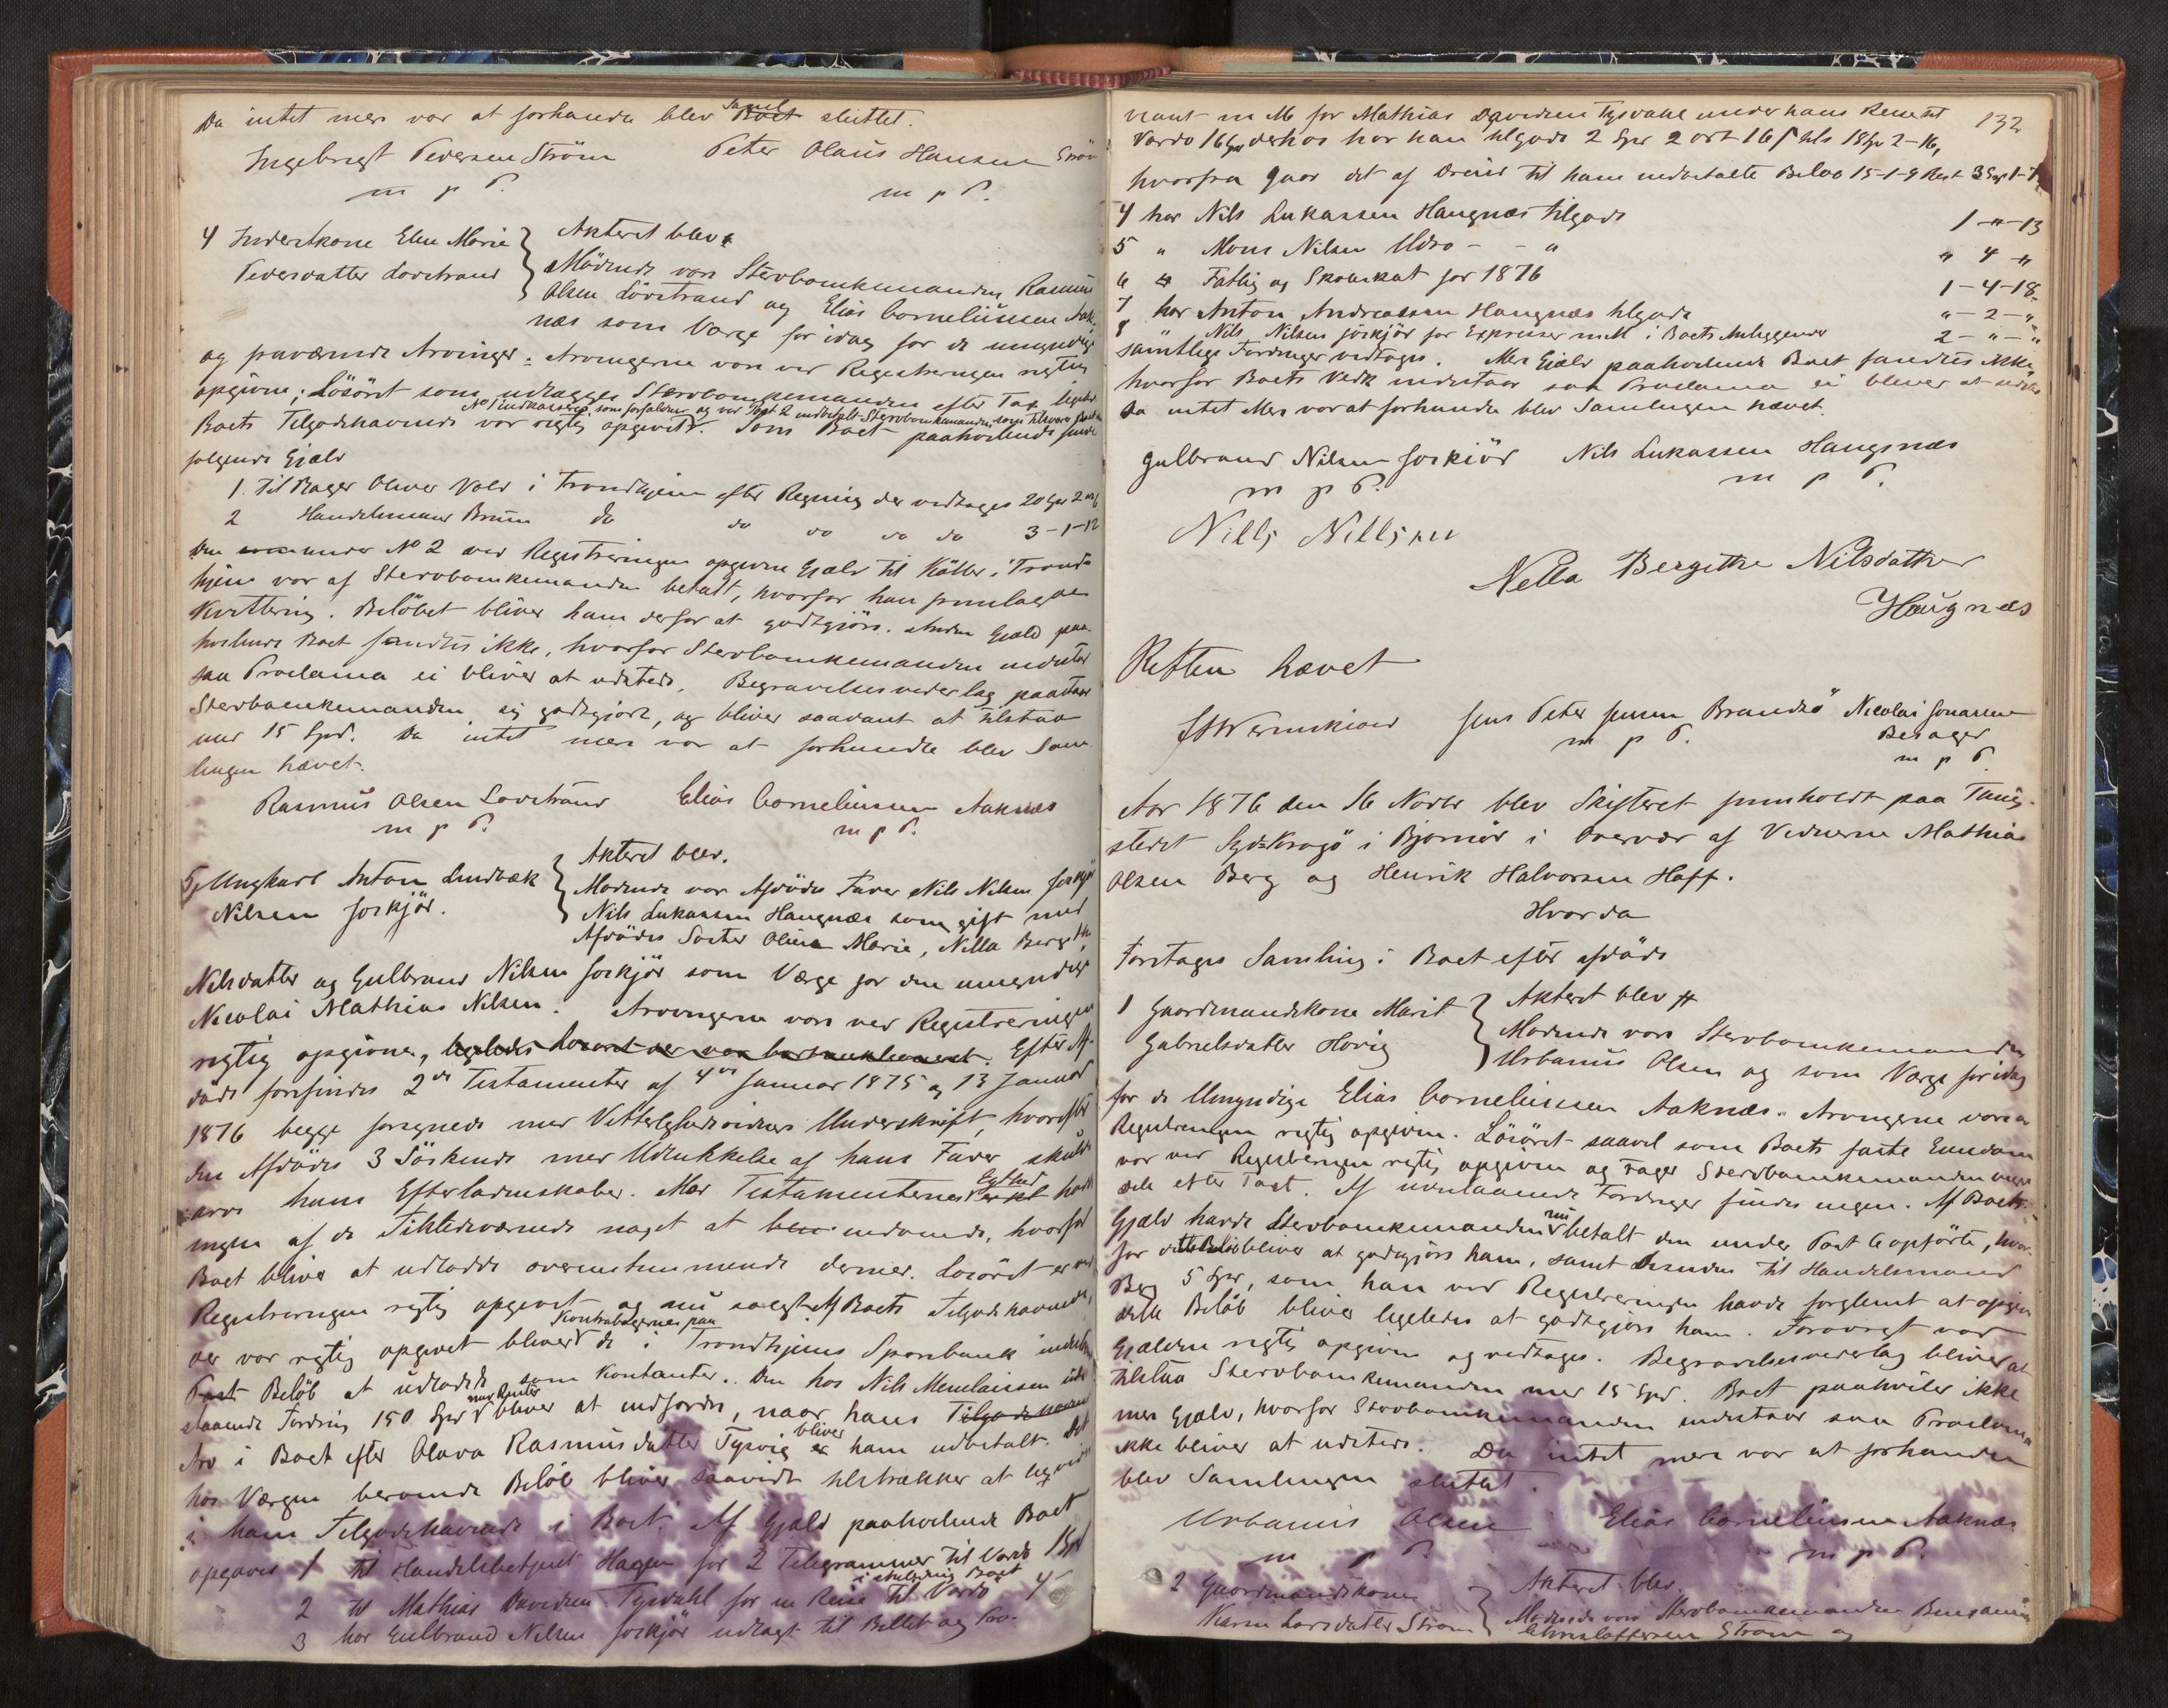 Da intet mere var at forhandle blev Samel Boet sluttet.
Ingebrigt Pedersen Ström Peter Olaus Hansen Ström
m p P. m p P.
4 Inderstkone Elen Marie Akteret blev
Pedersdatter Lovstrand Mödende vare Stervboenkemanden Rasmus
Olsen Lövstrand og Elias Corneliussen Aak-
næs som Værge for idag for de umyndige
og fraværende Arvinger. Arvingerne vare ved Registreringen rigtig
opgivne; Lösöret som udlagges Stervboenkemanden efter Tax ligesaa
No 1 indkasseres som forfalden og ved Post 2 indbetalt Stervboenkemanden
Boets Tilgodehavende var rigtig opgivet. Som Boet paahvilende
følgende Gjæld
1. Til Bager Oluver Vold i Trondhjem efter Regning der vedtages 20 Spd 2
2 Handelsmand Bruun do do do do do 3-1-12
Den under No 2 ved Registreringen opgivne Gjæld til Köller i Trond-
hjem var af Stervboenkemanden betalt, hvorfor han fremlagde
Kvittering. Belöbet bliver ham derfor at godtgjöre. Anden Gjæld paa-
hvilende Boet fandtes ikke, hvorfor Stervboenkemanden indestaar
saa Proclama ei bliver at udstede. Begravelsesvederlag paastaar
Stervboenkemanden sig godtgjort, og bliver saadant at tilstaa
med 15 Spd. Da intet mere var at forhandle blev Sam-
lingen hævet.
Rasmus Olsen Lovstrand Elias Corneliussen Aaknæs
m p P. m p P.
5, Ungkarl Anton Lindbæk Akteret blev.
Nilsen forkjör. Mödende var Afdödes Fader Nils Nilsen forkjör
Nils Lukassen Haugnæs som gift med
Afdödes Söster Oline Marie, Nella Bergitte
Nilsdatter og Gulbrand Nilsen forkjör som Værge for den umyndige
Nicolai Mathias Nilsen. Arvingerne vare ved Registreringen
rigtig opgivne, ligeledes Lösöret Efter Af-
döde forefindes 2de Testamenter af 4de Januar 1875 og 13 Januar
1876 begge forsynede med Vitterlighedsvidners Underskrift, hvorefter
den Afdödes 3 Söskende med Udelukkelse af hans Fader skulde
arve hans Efterladenskaber. Mod Testamenternes Gyldighed havde
ingen af de Tilstedeværende noget at indvende, hvorfor
Boet bliver at udlodde overensstemmende dermed. Lösöret er ved
Registreringen rigtig opgivet og nu solgt. Af Boets Tilgodehavende,
Kontrabögernes paa
der var rigtig opgivet bliver de i Trondhjems Sparebank indest.
Post Belöb at udlodde som Kontanter. Den hos Nils Menelaissen ude
med Renter
staaende Fordring 150 Spd bliver at indfordre, naar hans Tilgodehavende
bliver
Arv i Boet efter Olava Rasmusdatter Tysvig er ham udbetalt. Det
hos Værgen beroende Belöb bliver saavidt tilstrækker at
ham Tilgodehavende i Boet. Af Gjæld paahvilende Boet
opgaves 1 til Handelsbetjent Hagen for 2 Telegrammer til Vardö 1 Spd
i Anledning Boet
2 til Mathias Davidsen Tysdahl for en Reise til Vardö 4
3 har Gulbrand Nilsen forkjör udlagt til Billet og Pro-
132
viant m M for Mathias Davidsen Tysdahl under hans Reise til
Vardö 16 Spd derhos har han tilgode 2 Spd 2 ort 16 s tils 18 Spd 2-16,
hvorfra gaar det af til ham indbetalte Belöb 15-1-9 Rest 3 Spd 1-7
4 har Nils Lukassen Haugnæs tilgode 1-"-13
5 " Mons Nilsen Uldro - - " " 4 "
6 Fattig og Skoleskat for 1876 1-4-18
7 har Anton Andreassen Haugnæs tilgode "-2-"
8 " Nils Nilsen forkjör for Expresser m M i Boets Anliggender 2-"-"
samtlige Fordringer vedtoges. Mere Gjæld paahvilende Boet fandtes ikke,
hvorfor Boets Vedk indestaar saa Proclama ei bliver at udstede
Da intet Mere var at forhandle blev Samlingen hævet.
Gulbrand Nilsen forkiör Nils Lukassen Haugnæs
m p P. m p P.
Nills Nillsen
Nella Bergitthe Nilsdatter
Haugnæs
Retten hævet
Jens Peter Jensen Brandsö Nicolai Jonassen
m p P. Besager
m p P
Aar 1876 den 16 Novbr blev Skifteret fremholdt paa Thing-
stedet Syd-Krogö i Bjornör i Overvær af Vidnerne Mathias
Olsen Berg og Henrik Halvorsen Hoff.
Hvorda
Foretages Samling i Boet efter afdöde
1 Gaardmandskone Marit Akteret blev
Gabrielsdatter Hovig Mödende vare Stervboenkemanden
Urbanus Olsen og som Værge for idag
for de Umyndige Elias Corneliussen Aaknæs. Arvingerne vare ved
Registreringen rigtig opgivne. Lösöret saavel som Boets faste Eiendom
var ved Registreringen rigtig opgivne og tager Stervboenkemanden begge
dele efter Taxt. Af udestaaende Fordringer findes ingen. Af Boets
nu
Gjæld havde Stervboenkemanden betalt den under Post 6 opförte, hvor-
for dette Belöb bliver at godtgjöre ham, samt desuden til Handelsmand
Berg 5 Spd, som han ved Registreringen havde forglemt at opgive
dette Belöb bliver ligeledes at godtgjöre ham. Forövrigt var
Gjælden rigtig opgiven og vedtages. Begravelsesvederlag bliver at
tilstaa Stervboenkemanden med 15 Spd. Boet paahviler ikke
mere Gjæld, hvorfor Stervboenkemanden indestaar saa Proclama
ikke bliver at udstede. Da intet mere var at forhandle
blev Samlingen sluttet.
Urbanus Olsen Elias Corneliussen Aaknæs
m p P. m p P.
2 Gaardmandskone Akteret blev.
Karen Larsdatter Strøm Mödende vare Stervboenkemanden Benjamin
Christoffersen Strøm og